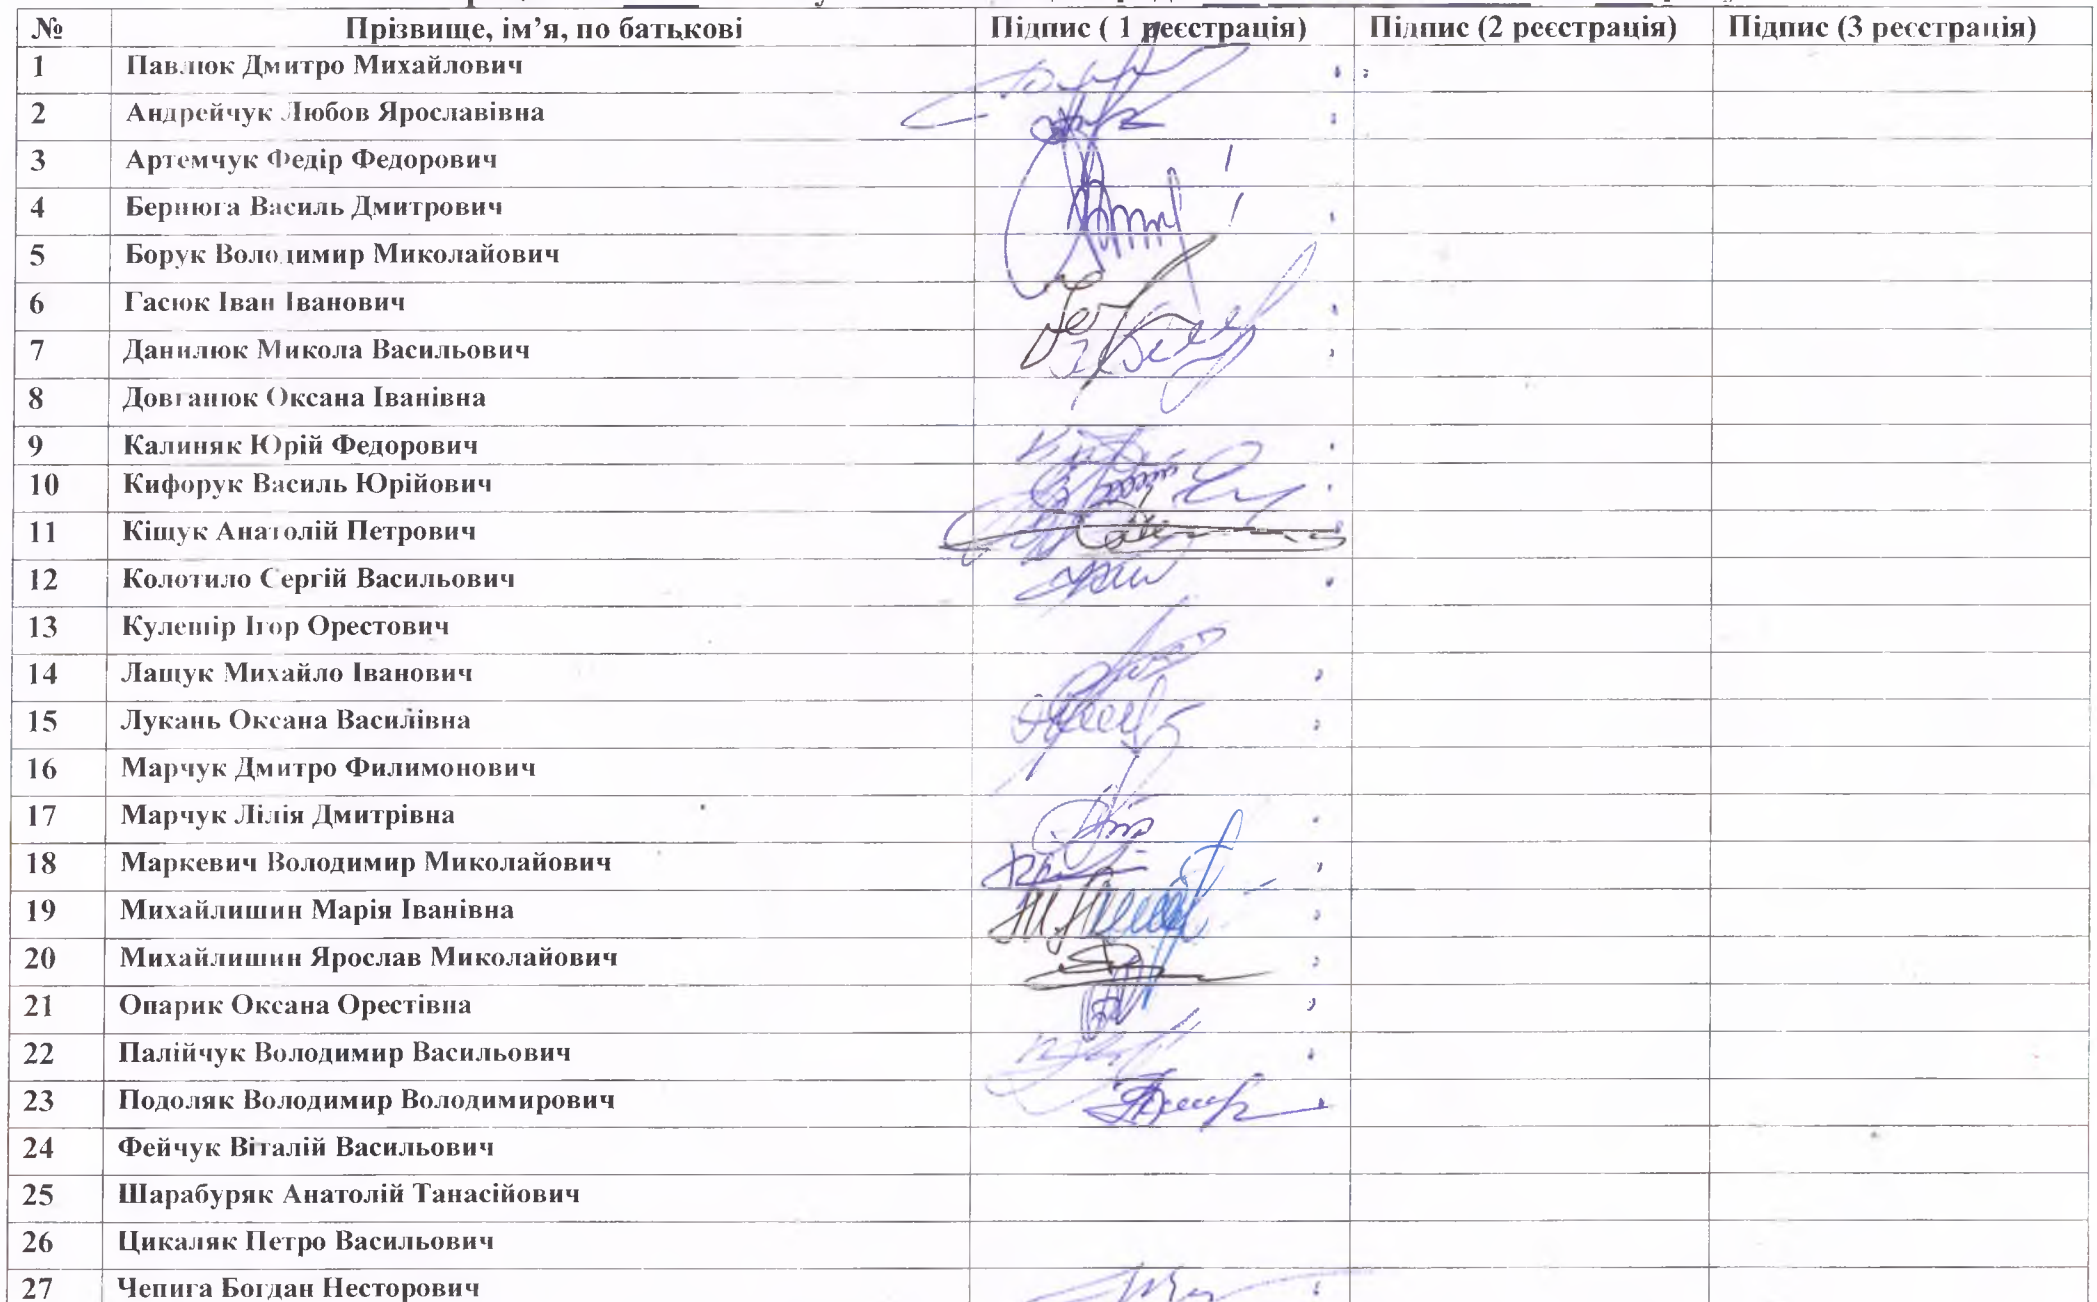 № Прізвище, ім’я, по батькові Підпис ( 1 реєстрація) Підпис (2 реєстрація) Підпис (3 реєстрація)
1 Павлюк Дмитро Михайлович
2 Андрейчук Любов Ярославівна
3 Артемчук Федір Федорович
4 Бернюга Василь Дмитрович
5 Борук Володимир Миколайович
6 Гасюк Іван Іванович
7 Данилюк Микола Васильович
8 Довганюк Оксана Іванівна
9 Калиняк Юрій Федорович
10 Кифорук Василь Юрійович
11 Кіщук Анатолій Петрович
12 Колотило Сергій Васильович
13 Кулешір Ігор Орестович
14 Лащук Михайло Іванович
15 Лукань Оксана Василівна
16 Марчук Дмитро Филимонович
17 Марчук Лілія Дмитрівна
18 Маркевич Володимир Миколайович
19 Михайлишин Марія Іванівна
20 Михайлишин Ярослав Миколайович
21 Опарик Оксана Орестівна
22 Палійчук Володимир Васильович
23 Подоляк Володимир Володимирович
24 Фейчук Віталій Васильович
25 Шарабуряк Анатолій Танасійович
26 Цикаляк Петро Васильович
27 Чепига Богдан Несторович